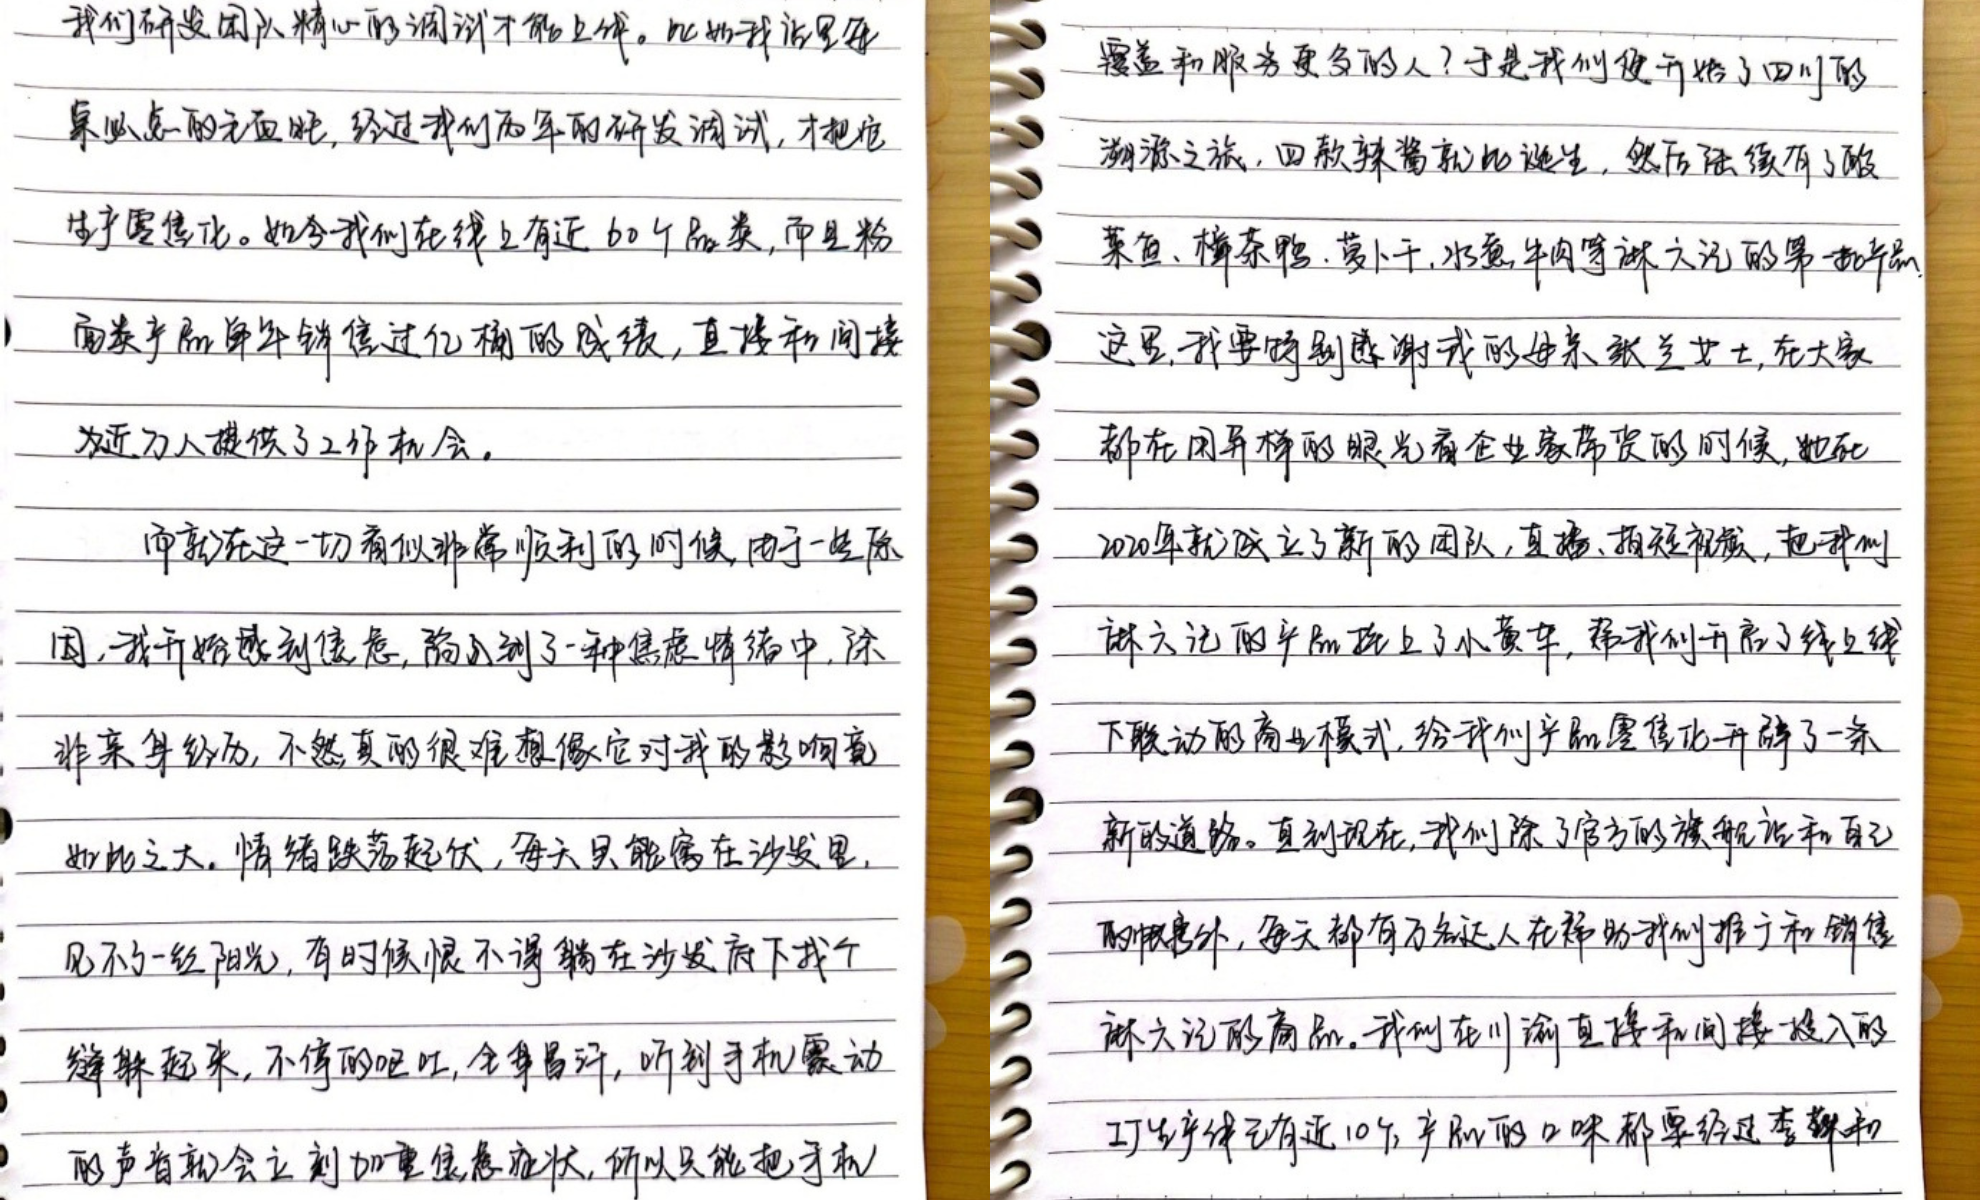 我们研发团队精心的调试才能上线。比如我店里每
桌必点的元血旺,经过我们两年的研发调试,才把它
生产零售化。如今我们在线上有近60个品类,而且粉
面类产品单年销售过亿桶的成绩,直接和间接
为近万人提供了工作机会。
而就在这一切看似非常顺利的时候,由于一些原
因,我开始感到焦虑,陷入到了一种焦虑情绪中,除
非亲身经历,不然真的很难想像它对我的影响竟
如此之大。情绪跌荡起伏,每天只能窝在沙发里,
见不了一丝阳光,有时候恨不得躺在沙发底下找个
缝躲起来,不停的呕吐,全身冒汗,听到手机震动
的声音就会立刻加重焦虑症状,所以只能把手机
覆盖和服务更多的人?于是我们便开始了四川的
溯源之旅,四款辣酱就此诞生,然后陆续有了酸
菜鱼、樟茶鸭、萝卜干、水煮牛肉等麻六记的第一批产品,
这里,我要特别感谢我的母亲张兰女士,在大家
都在用异样的眼光看企业家带货的时候,她在
2020年就成立了新的团队,直播、拍短视频,把我们
麻六记的产品挂上了小黄车,帮我们开启了线上线
下联动的商业模式,给我们产品零售化开辟了一条
新的道路。直到现在,我们除了官方的旗舰店和自己
的账号外,每天都有万名达人在帮助我们推广和销售
麻六记的商品。我们在川渝直接和间接投入的
工厂生产线已有近10个,产品的口味都要经过李韩和